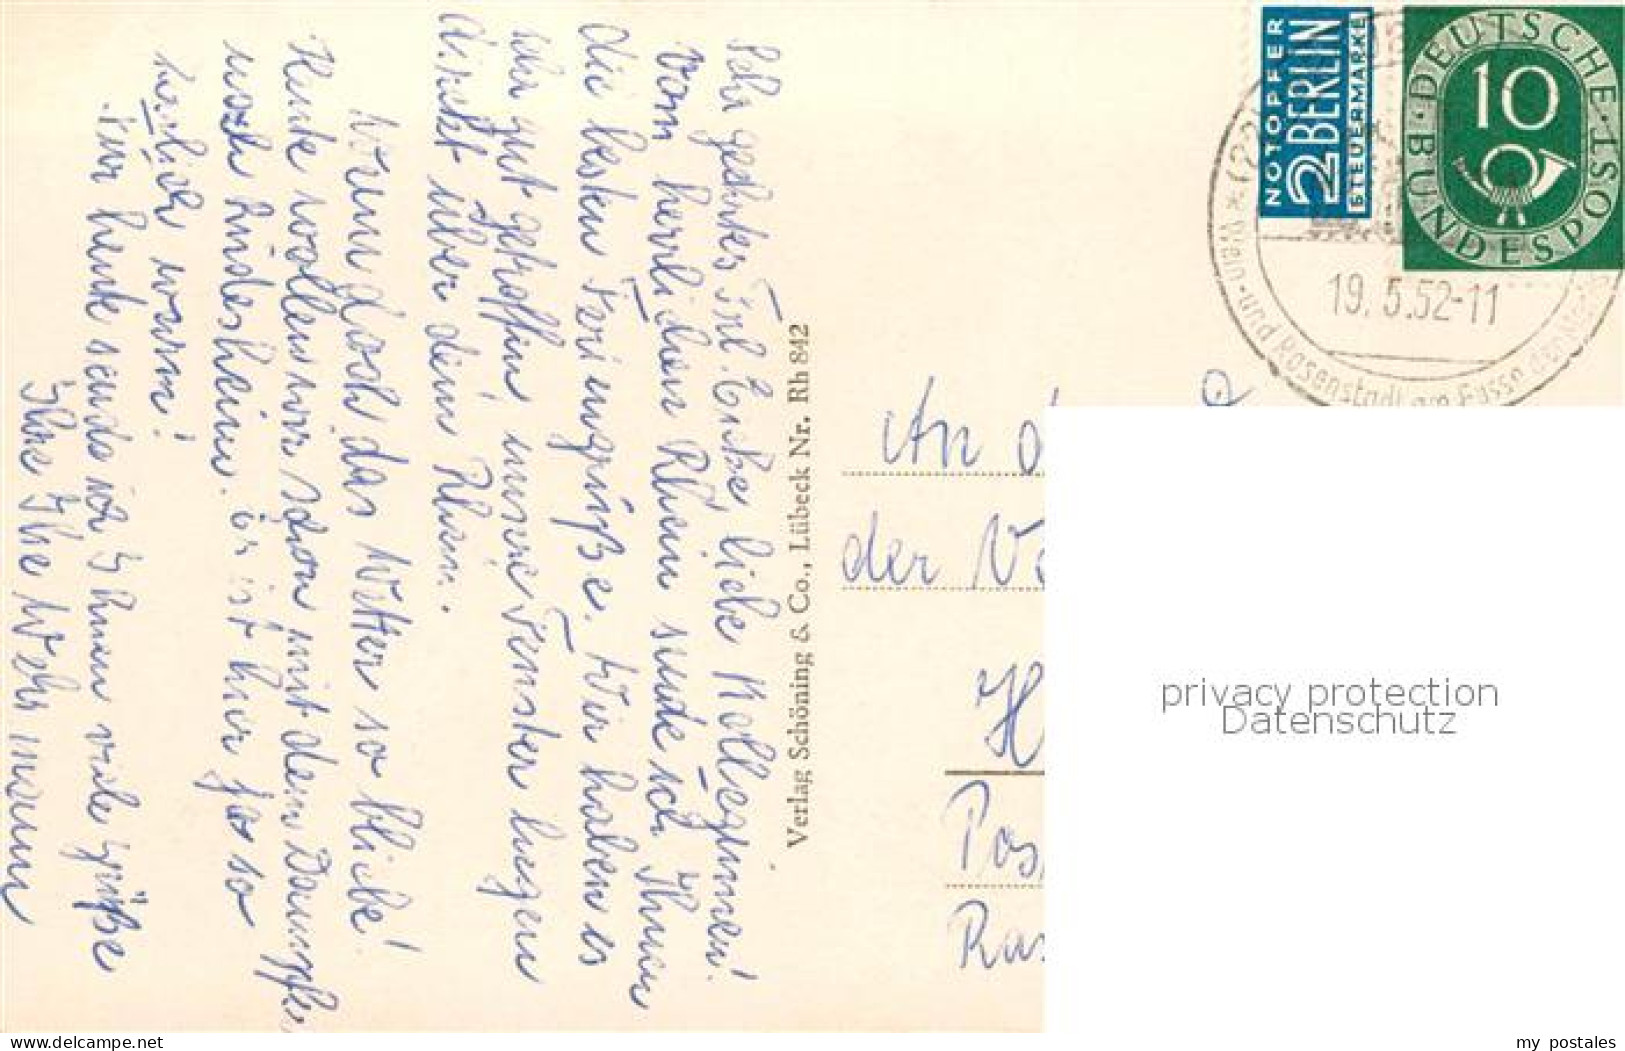 Sehr geehrtes Frl. liebe Kolleginnen!
Vom herrlichen Rhein sende ich Ihnen
die besten Feriengrüße. Wir haben es
sehr gut getroffen unsere Fenster liegen
direkt über dem Rhein.
Wenn doch das Wetter so bliebe!
Heute wollen wir schon mit dem Dampfer
nach Rüdesheim. Es ist hier ja so
herrlich warm!
Für heute sende ich Ihnen viele Grüße
Ihre
Verlag Schöning & Co., Lübeck Nr. Rh 842
NOTOPFER
2 BERLIN
STEUERMARKE
DEUTSCHE BUNDESPOST
10
19.5.52-11
Wein- und Rosenstadt am Fusse
An d
der V
H
Pos
Ras
privacy protection
Datenschutz
www.delcampe.net
my_postales